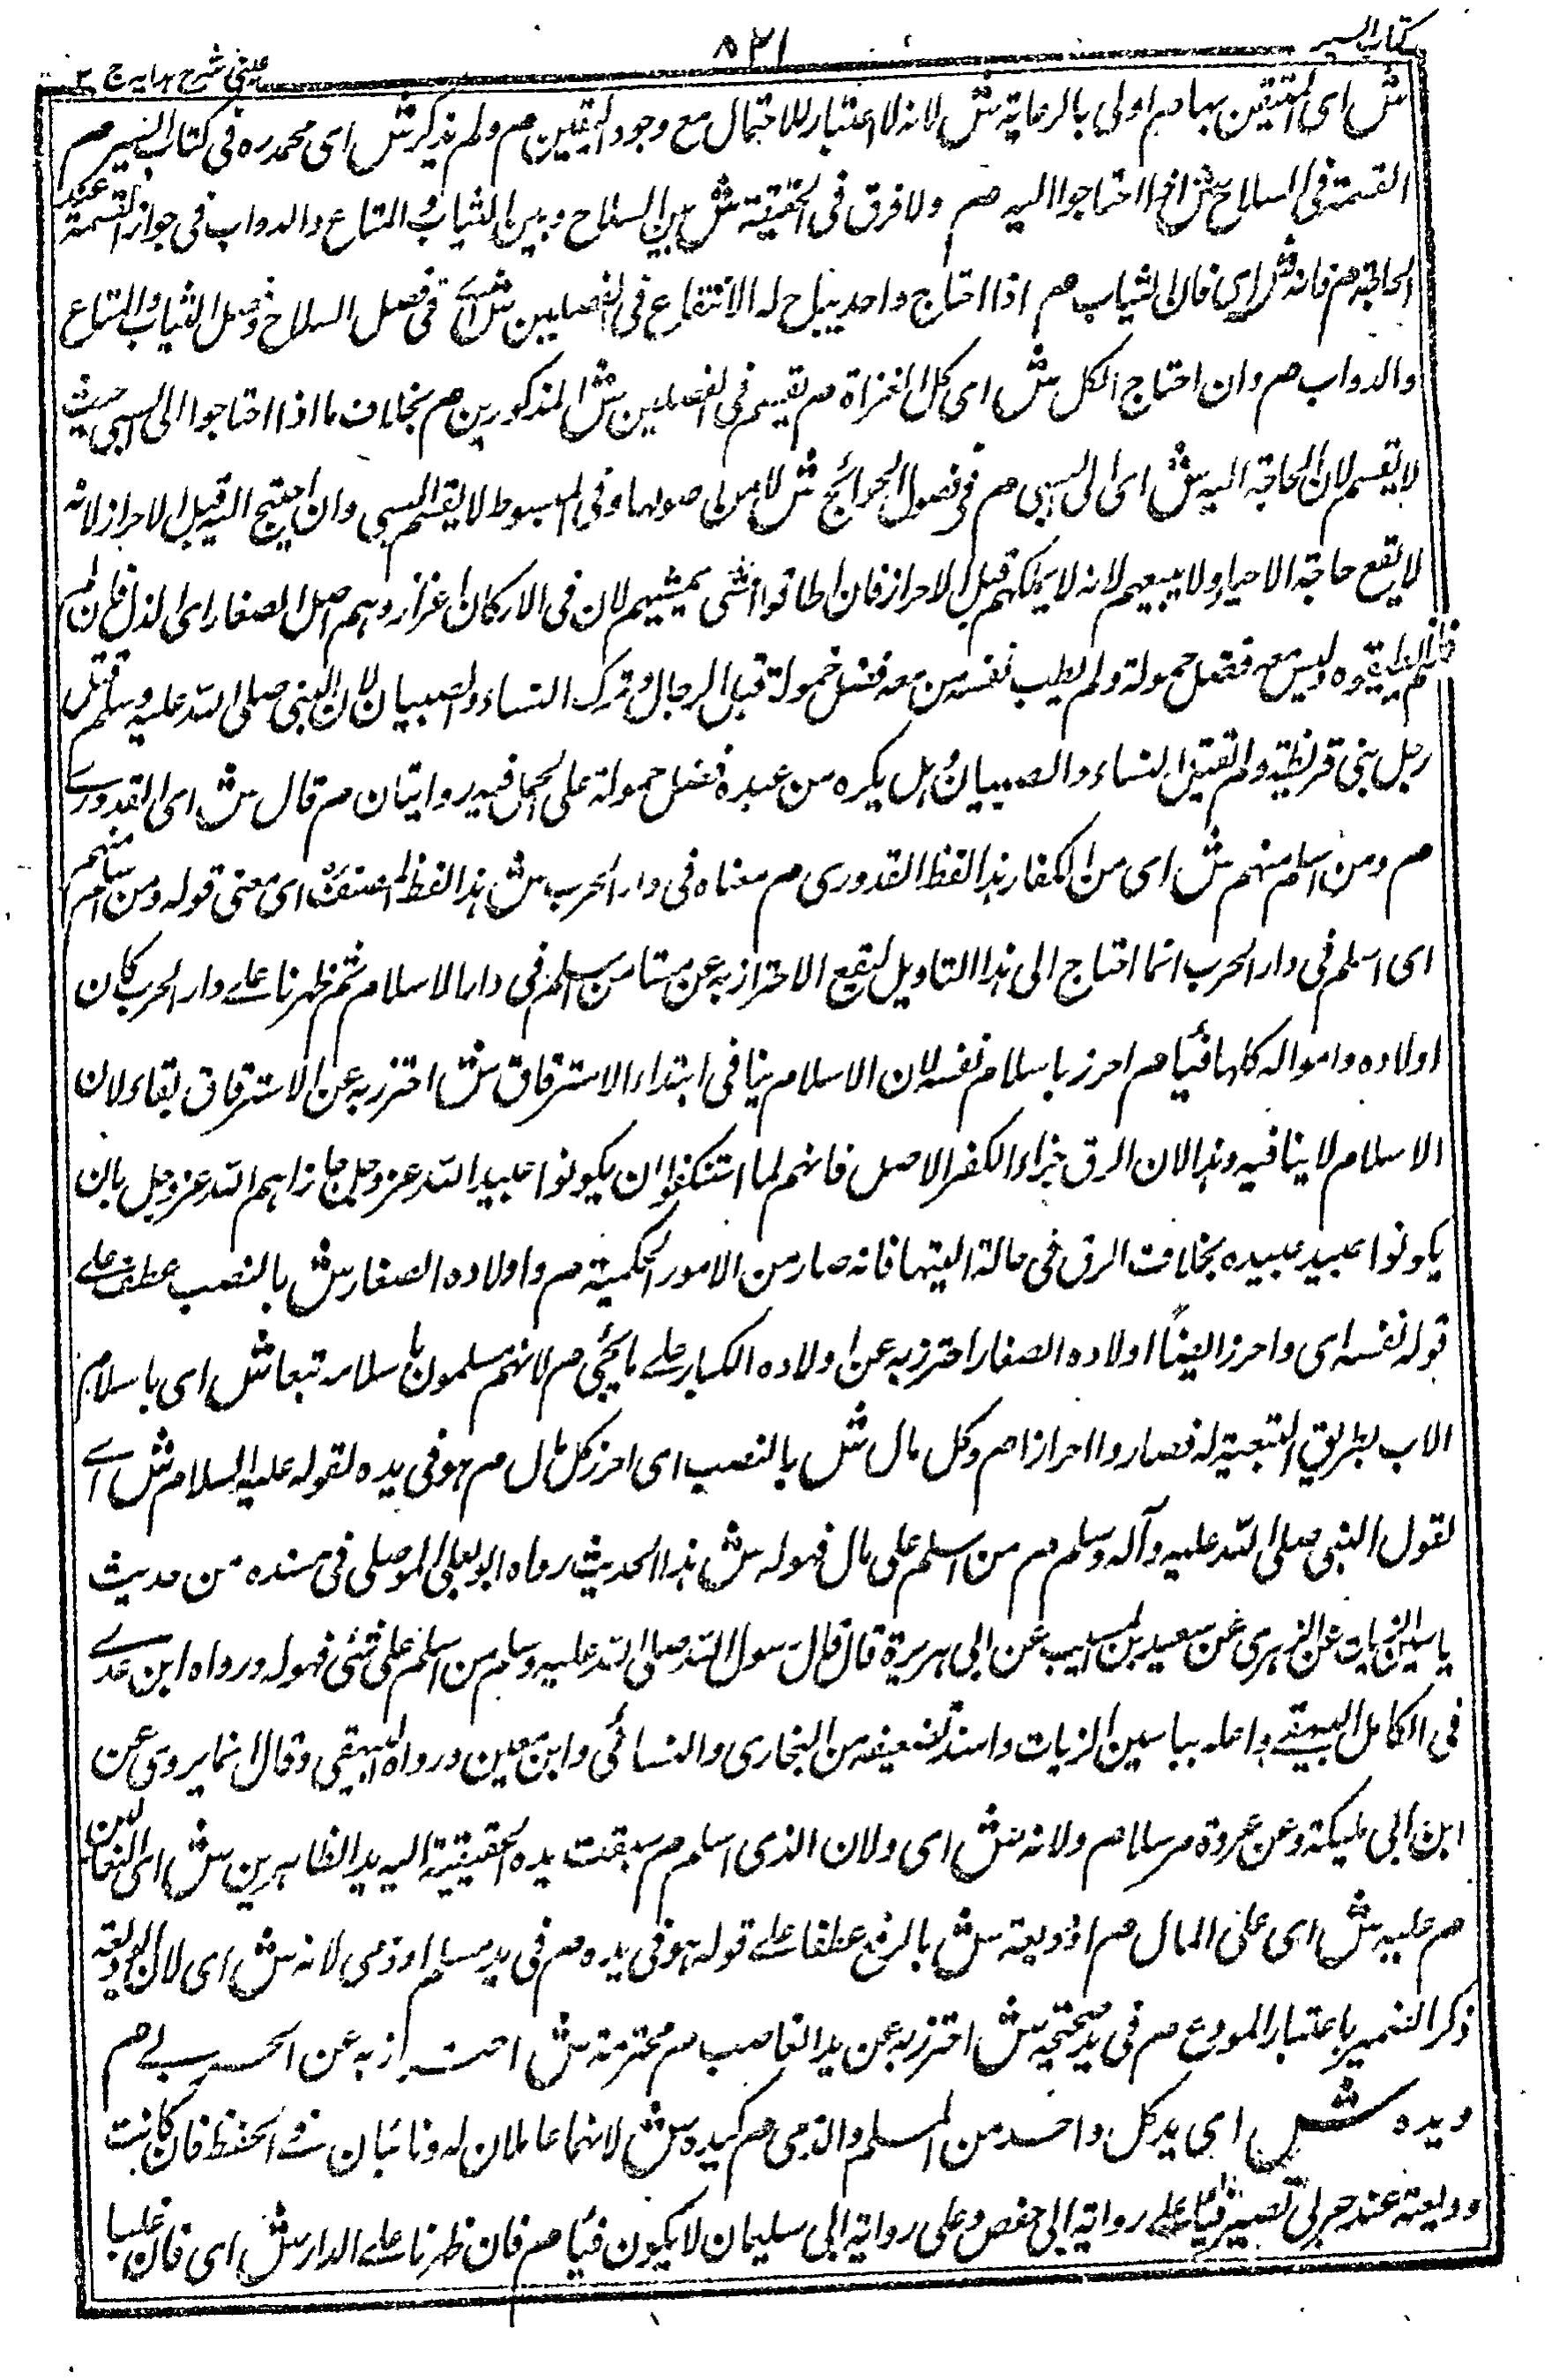 كتاب السير
٨٢١
عينى شرح هدايہ ج ٢
ش اى المتيقن بها م اولى بالرعاية ش لانه لا اعتبار للاحتمال مع وجود اليقين م ولم يذكر ش اى محمد ره فى كتاب السير م
القسمة فى السلاح ش اذا احتاجوا اليه م ولا فرق فى الحقيقة ش بين السلاح وبين الثياب والمتاع والدواب فى جواز القسمة عند
الحاجة م فانه ش اى فان الثياب م اذا احتاج واحد يباح له الانتفاع فى الفصلين ش اى فى فصل السلاح وفصل الثياب والمتاع
والدواب م وان احتاج الكل ش اى كل الغزاة م يقسم فى الفصلين ش المذكورين م بخلاف ما اذا احتاجوا الى السبى حيث
لا يقسم لان الحاجة اليه ش اى الى السبى م فى فضول الحوائج ش لا من اصولها وفى المبسوط لا يقسم السبى وان احتيج اليه قبل الاحراز لانه
لا يقع حاجة الاحياء ولا يبيعهم لانه لا يملكهم قبل الاحراز فان اطاقوا المشى يمشيهم لان فى الاركان اعزاز وهم اهل الصغار اى الذل فان لم
يطيقوه وليس معه فضل حمولة ولم يطب نفس من معه فضل حمولة قتل الرجال وترك النساء والصبيان لان النبى صلى الله عليه وسلم قتل
رجل بنى قريظة ولم يقتل النساء والصبيان وهل يكره من عبده فضل حمولة على الحمل فيه روايتان م قال ش اى القدورے
م ومن اسلم منهم ش اى من الكفار هذا لفظ القدورى م معناه فى دار الحرب ش هذا لفظ المصنف اى معنى قوله ومن اسلم منهم
اى اسلم فى دار الحرب انما احتاج الى هذا التاويل ليقع الاحتراز به عن مستامن اسلم فى دار الاسلام ثم ظهرنا علے دار الحرب كان
اولاده وامواله كلها فيأ م احرز باسلامه نفسه لان الاسلام ينافى ابتداء الاسترقاق ش احترز به عن الاسترقاق بقاء لان
الاسلام لا ينافيه وهذا لان الرق جزاء الكفر الاصل فانهم لما استنكفوا ان يكونوا عبيد الله عز وجل جازاهم الله عز وجل بان
يكونوا عبيد عبيده بخلاف الرق فى حالة البقاء فانه صار من الامور الحكمية م واولاده الصغار ش بالنصب عطف علے
قوله نفسه اى واحرز ايضاً اولاده الصغار احترز به عن اولاده الكبار علے ما يجئ م لانهم مسلمون باسلامه تبعا ش اى باسلام
الاب بطريق التبعية له فصاروا احرازا م وكل مال ش بالنصب اى احرز كل مال م هو فى يده لقوله عليه السلام ش اے
لقول النبى صلى الله عليه وآله وسلم م من اسلم على مال فهو له ش هذا الحديث رواه ابو يعلى الموصلى فى مسنده من حديث
ياسين الزيات عن الزهرى عن سعيد بن المسيب عن ابى هريرة قال قال رسول الله صلى الله عليه وسلم من اسلم على شئى فهو له ورواه ابن عدے
فى الكامل البيهقے واعله بياسين الزيات واسند تضعيفه من البخارى والنسائى وابن معين ورواه البيهقى وقال انما يروى عن
ابن ابى مليكة وعن عروة مرسلا م ولانه ش اى ولان الذى اسلم م سبقت يده الحقيقية اليه يد الظاهرين ش اى الغالبين
م عليه ش اى على المال م او وديعة ش بالرفع عطفا علے قوله هو فى يده م فى يد مسلم او ذمى لانه ش اى لان الوديعة
ذكر الضمير باعتبار المودع م فى يد صحيحة ش احترز به عن يد الغاصب م محترمة ش احترز به عن الحربے م
ويده ش اى يد كل واحد من المسلم والذمى م كيده ش لانهما عاملان له ونائبان فے الحفظ فان كانت
وديعة عند حربى تصير فيأ علے رواية ابى حفص وعلى رواية ابى سليمان لا يكون فيأ م فان ظهرنا علے الدار ش اى فان غلبنا